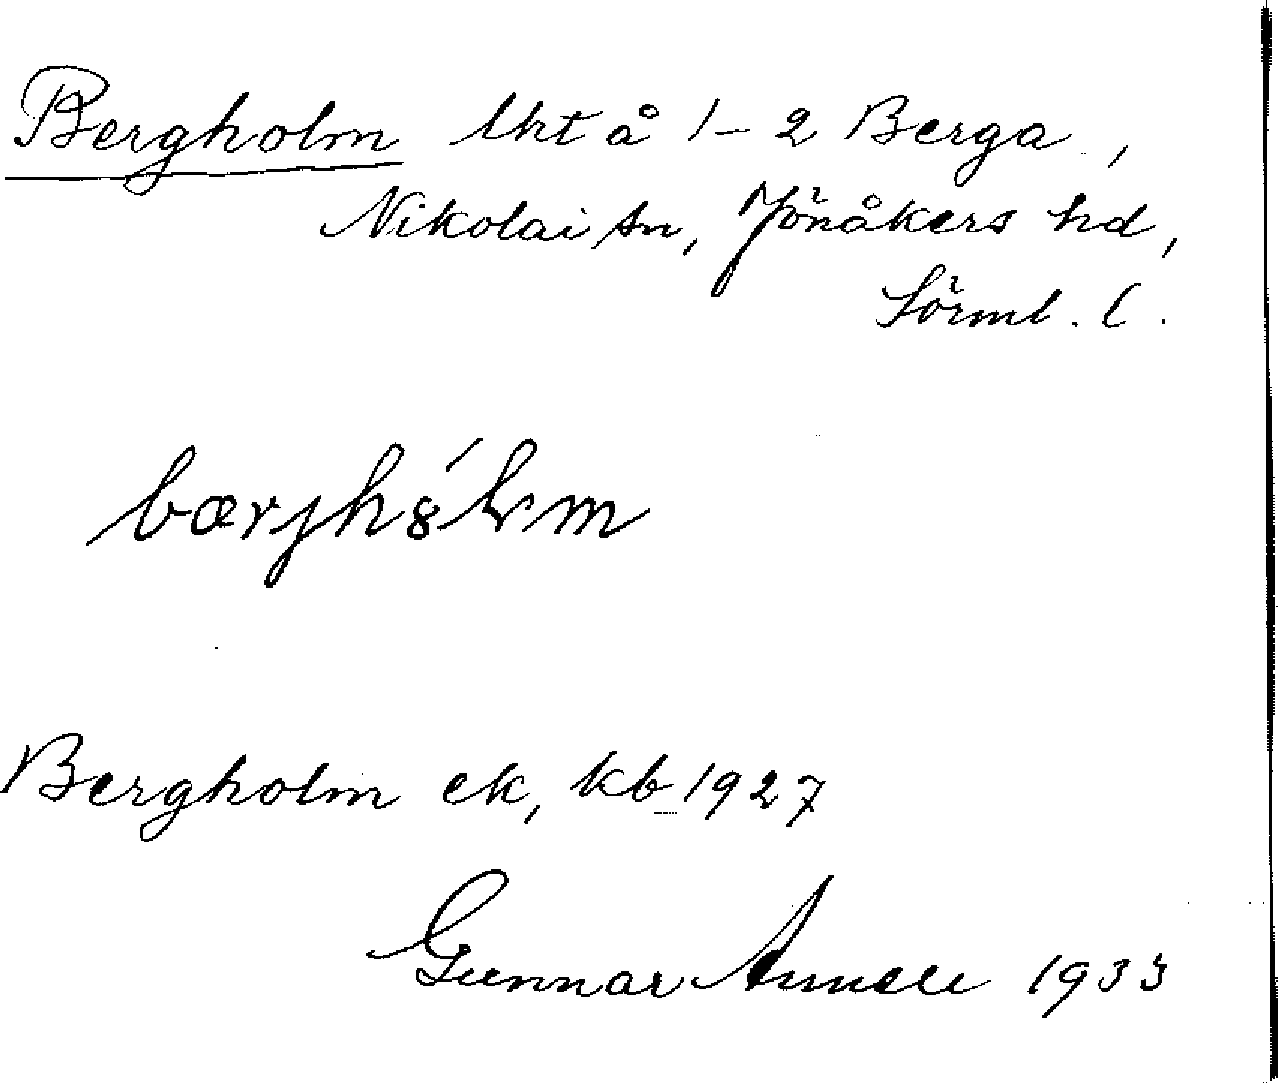 Bergholm lht å 1-2 Berga,
Nikolai sn, Jönåkers hd,
Sörml. l.
bærjhól̥m
Bergholm ek, kb 1927
Gunnar 1933